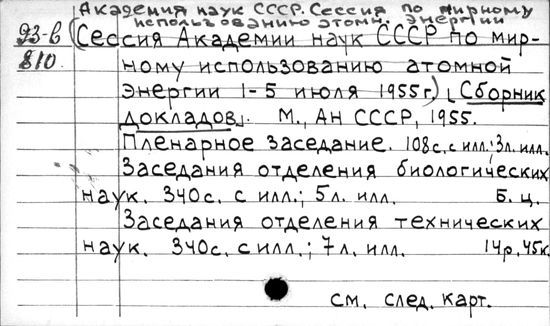 Академия наук СССР. Сессия по мирному
использованию атомн. энергии
93-6
810.
(Сессия Академии наук СССР по мир-
ному использованию атомной
энергии 1-5 июля 1955г.) [Сборник
докладов]. М., Ан СССР, 1955.
Пленарное заседание. 108с. с илл.; 3л. илл.
Заседания отделения биологических
наук. 340с. с илл.; 5л. илл. Б. ц.
Заседания отделения технических
наук. 340с. с илл.; 7л. илл. 14р. 45к.
см. след. карт.